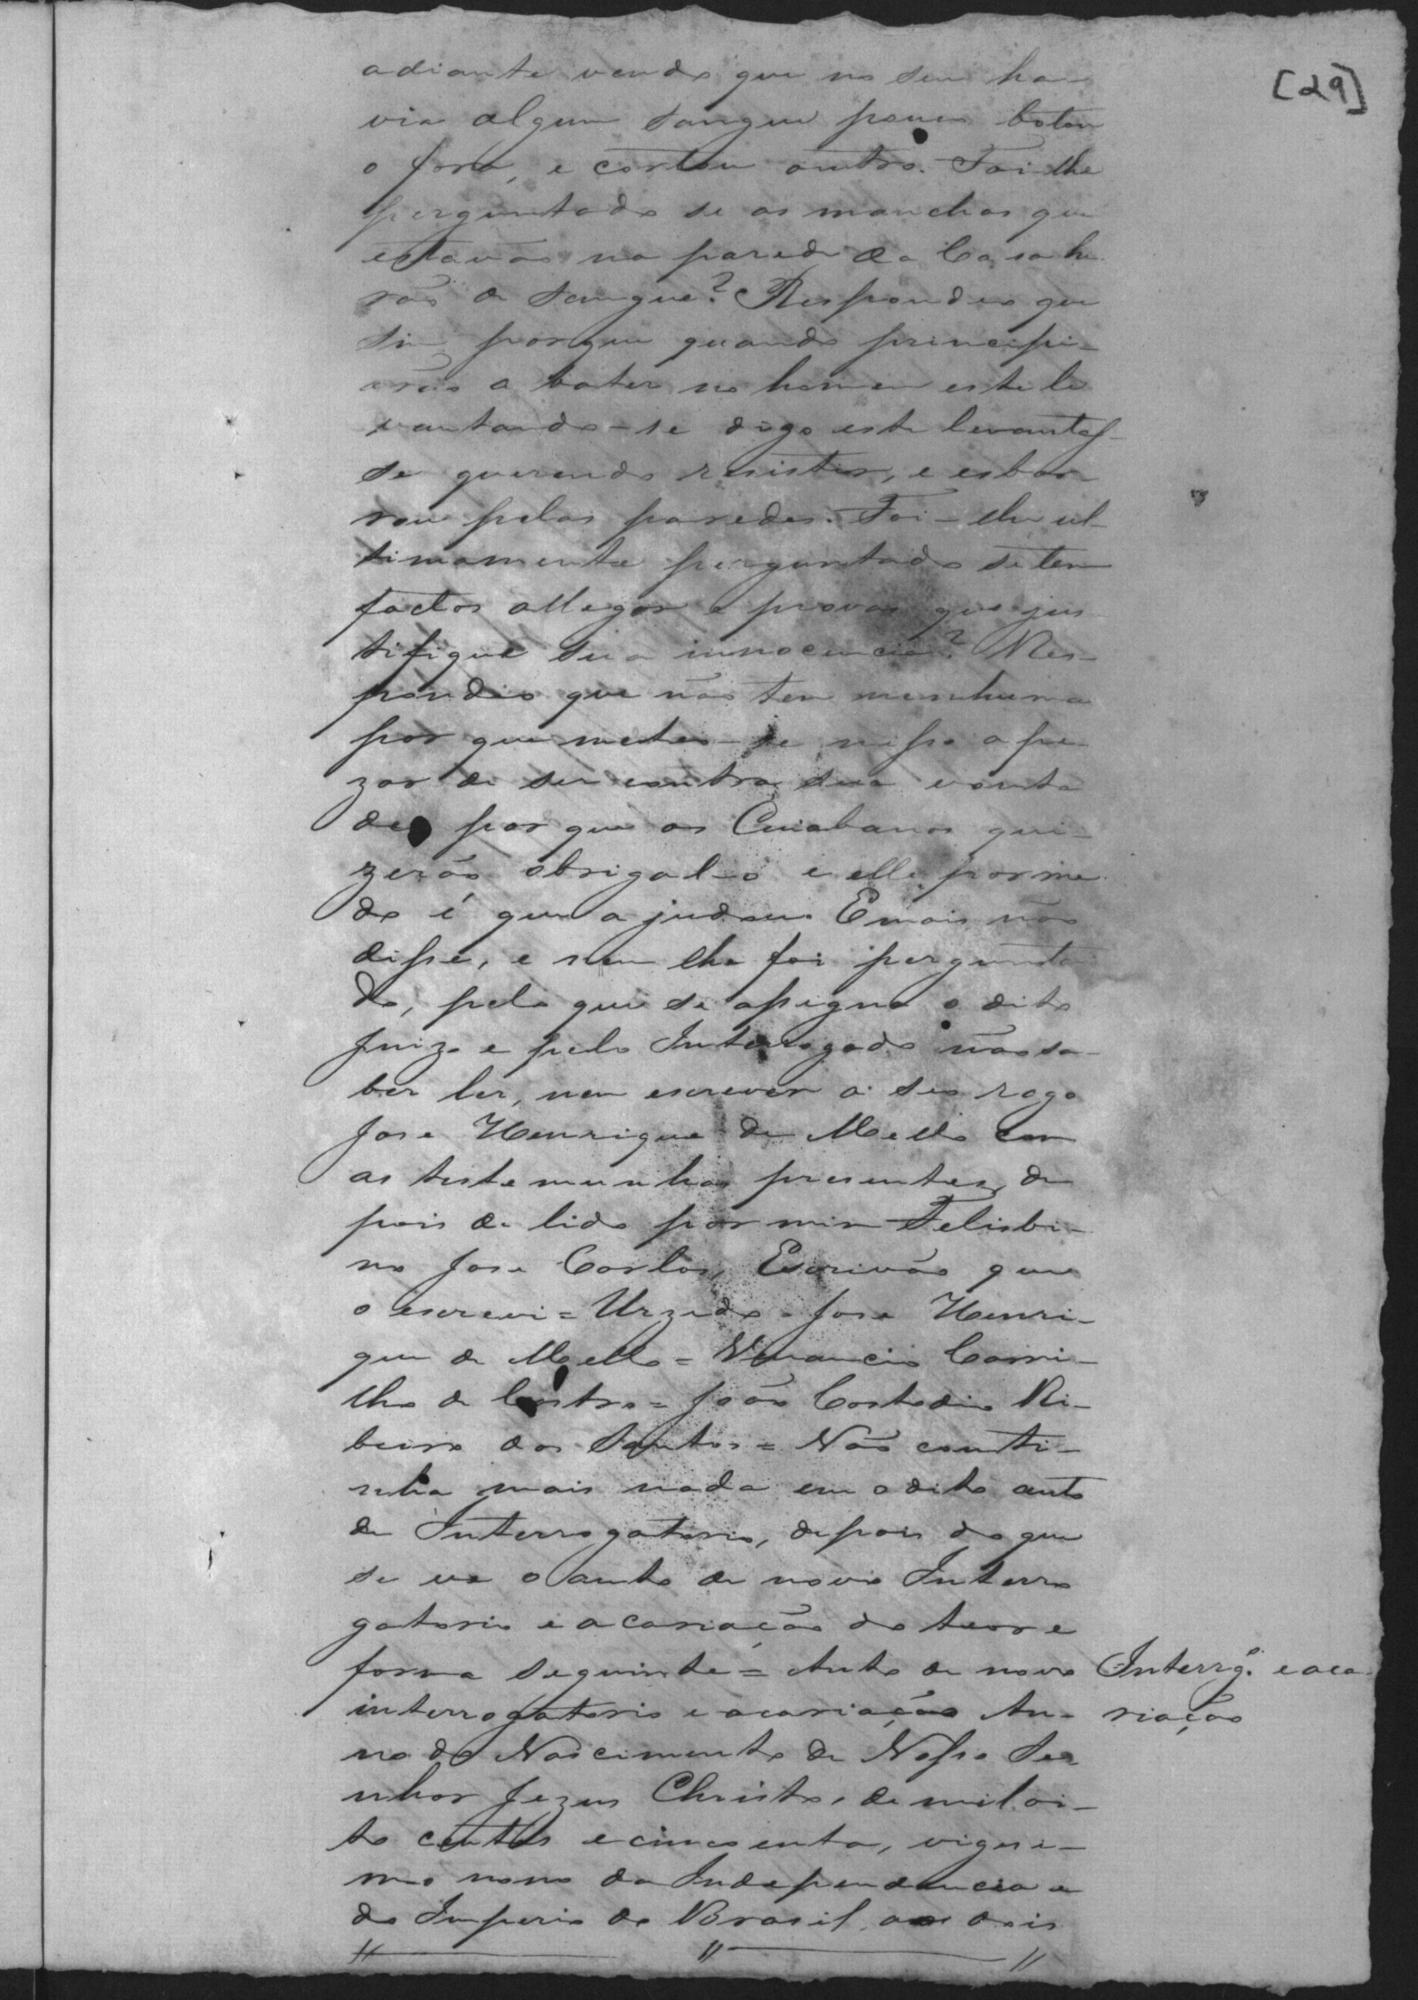 [29]
adiante vendo que no seu ha-
via algum sangue pouco botou
o fora, e cortou outro. Foi-lhe
perguntado se as manchas que
estavão na parede da Casa he-
rão de sangue? Respondeo que
sim porque quando principi-
arão a bater no homem este le
vantando-se digo este levantes-
se querendo resistir, e esbar-
rou pelas paredes. Foi-lhe ul-
timamente perguntado se tem
factos allegar e provas que jus
tifique sua innocencia? Res-
pondeo que não tem menhuma
por que meteo-se nisso ape-
zar de ser contra sua vonta
de, por que os Cuiabanos qui-
zerão obrigal-o e elle por me
do é que ajudou E mais não
disse, e nem lhe foi pergunta
do, pelo que se assigna o dito
Juiz e pelo Interrogado não sa-
ber ler, nem escrever a seo rogo
Jose Henrique de Mello com
as testemunhas presentes, de
pois de lido por mim Felisbi-
no Jose Carlos, Escrivão que
o escrevi = Urzedo = Jose Henri-
que de Mello = Venancio Carri-
lho de Castro = João Costodio Ri-
beiro dos Santos = Não conti-
nha mais nada em o dito auto
de Interrogatorio, depois do que
se ve o auto de novo Interro
gatorio e acariação do teor e
forma seguinte = Auto de novo
interrogatorio e acariação An-
no do Nascimento de Nosso Se
nhor Jezus Christo, de mil oi-
to centos e cincoenta, vigesi-
mo nono da Independencia e
do Imperio do Brasil, aos dois
Interrg.º e aca-
riação